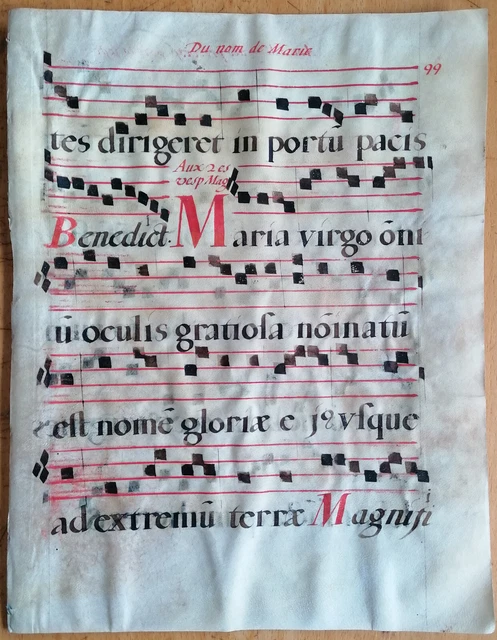 Du nom de Mariæ
99
tes dirigeret in portū pacis
Aux 2es
vesp Mag
Benedict. Maria virgo ōni
ū oculis gratiosa nōinatū
est nomē gloriæ e vsque
ad extremū terræ Magnifi